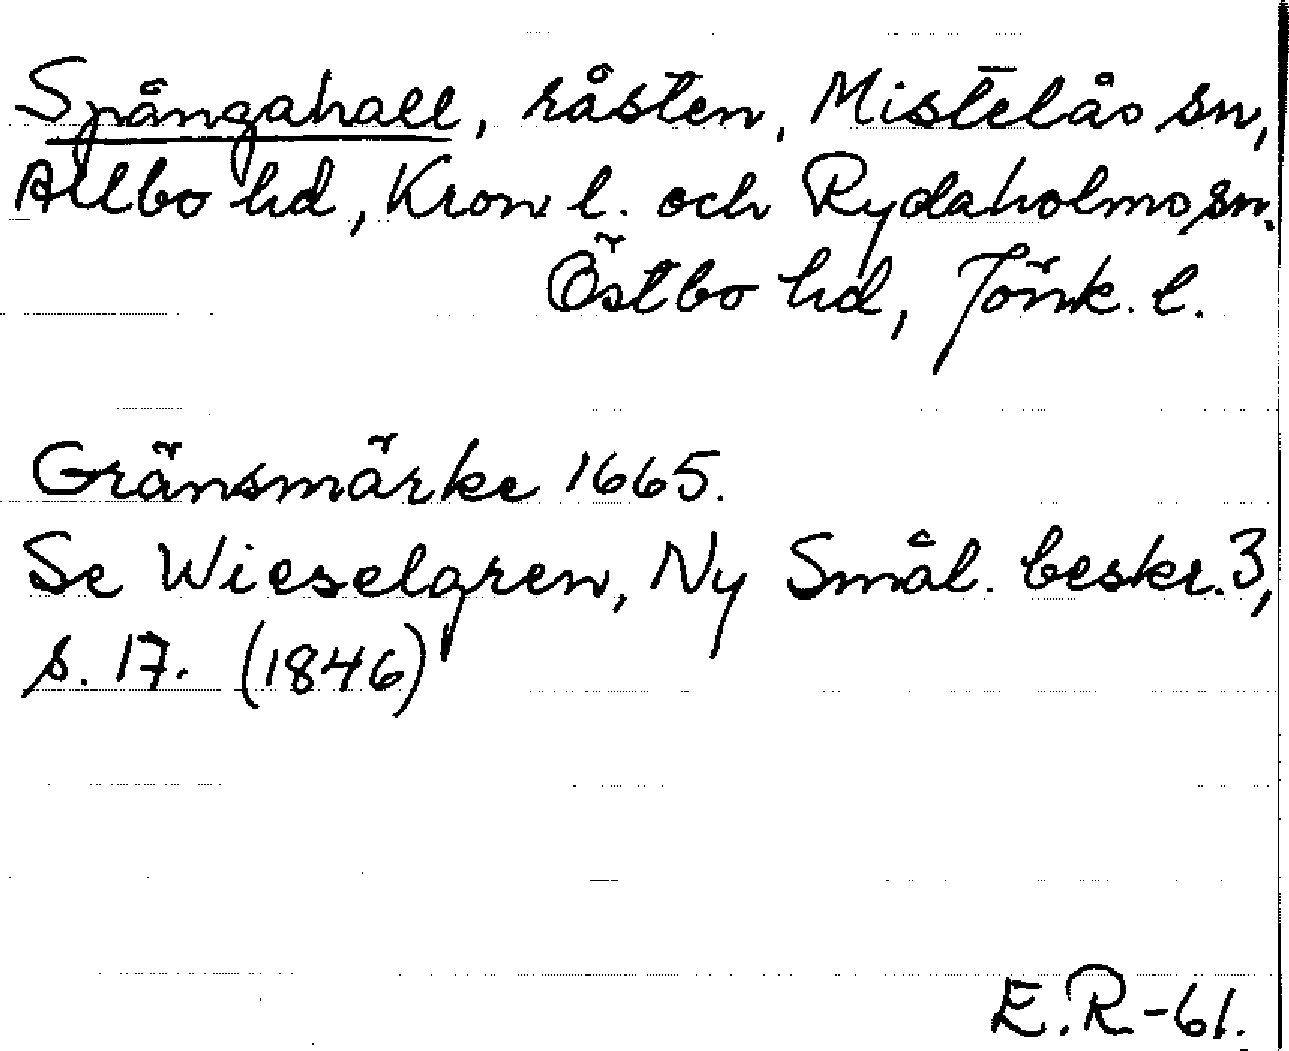 Spångahall, råsten, Mistelås sn,
Allbo hd, Kron. l. och Rydaholms sn.
Östbo hd, Jönk. l.
Gränsmärke 1665.
Se Wieselgren, Ny Smål. beskr. 3,
s. 17. (1846)
E.R-61.